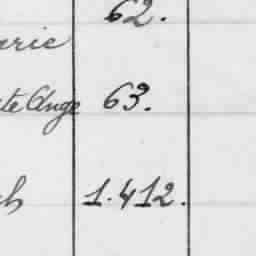 62.
arie
te Ange 63.
h 1.412.